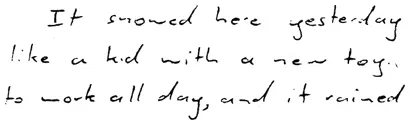 It snowed here yesterday
like a kid with a new toy..
to work all day, and it rained